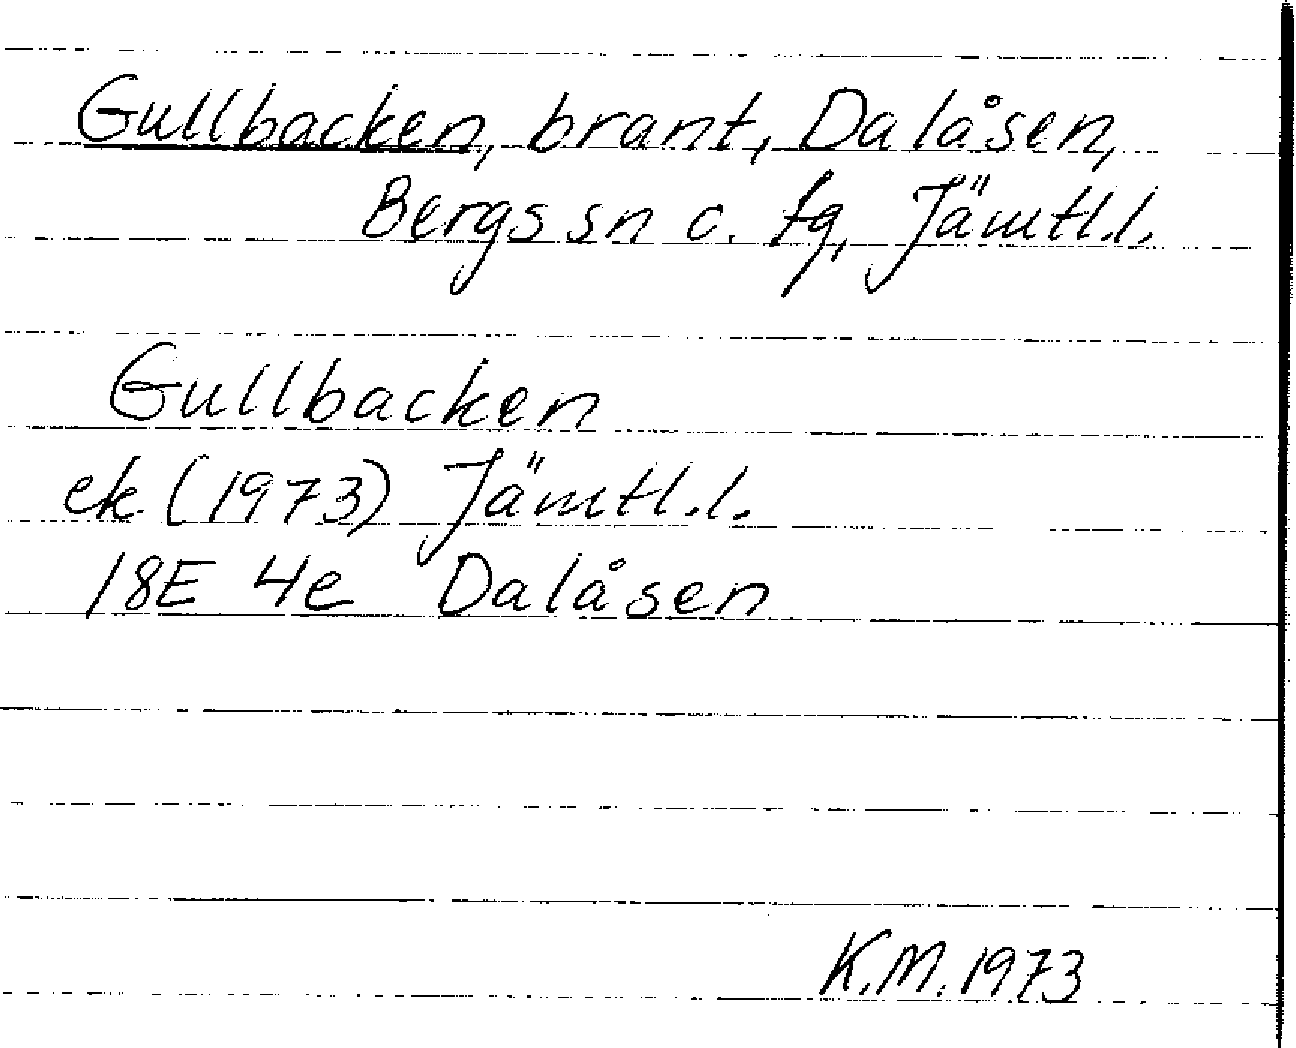 Gullbacken, brant, Dalåsen,
Bergs sn o. tg, Jämtl.l.
Gullbacken
ek (1973) Jämtl.l.
18E 4e Dalåsen
K.M. 1973